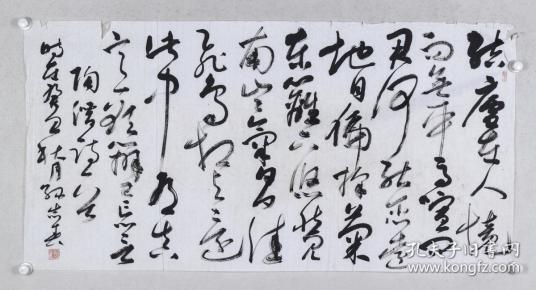 结庐在人境
而无车马喧问
君何能尔心远
地自偏采菊
东篱下悠然见
南山山气日夕佳
飞鸟相与还
此中有真
意欲辨已忘言
陶渊明诗一首
时在癸丑秋月
孔夫子旧书网
www.kongfz.com